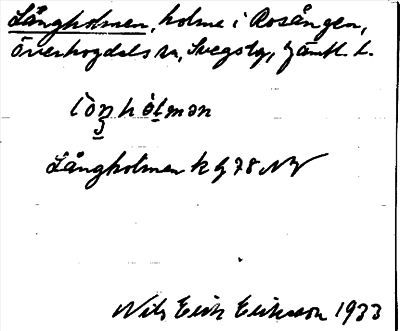 Långholmen, holme i Rosången,
Överhogdals sn, Svegs tg, Jämtl. l.
Långholmen k G 78 NV
Nils Erik Eriksson 1933